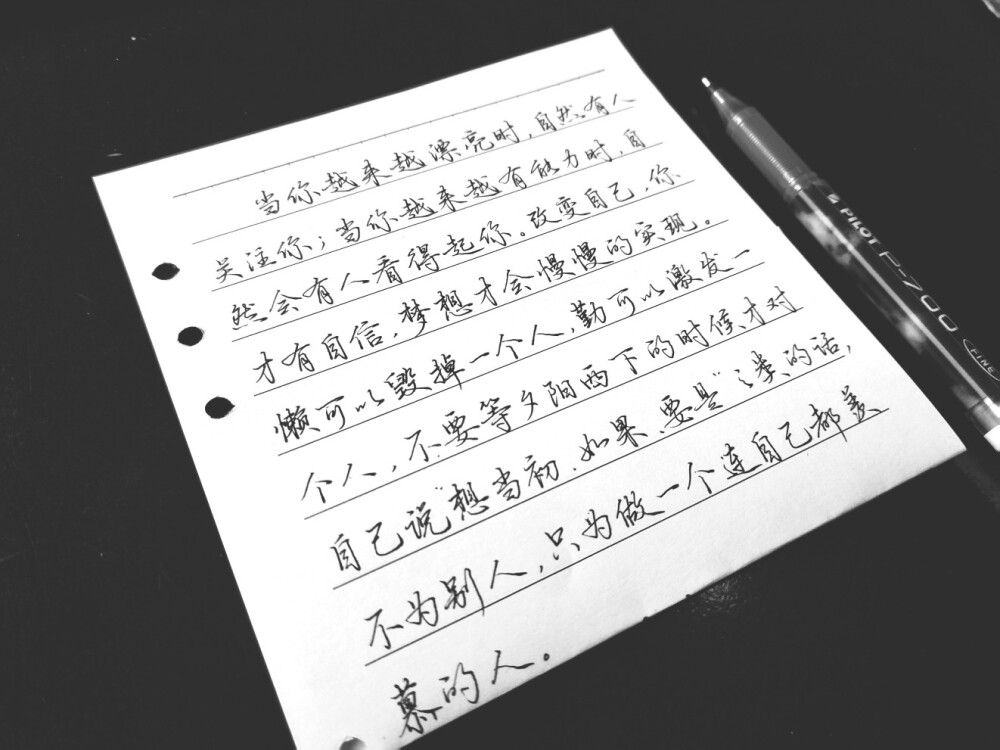 当你越来越漂亮时,自然有人
关注你;当你越来越有能力时,自
然会有人看得起你。改变自己,你
才有自信,梦想才会慢慢的实现。
懒可以毁掉一个人,勤可以激发一
个人,不要等夕阳西下的时候才对
自己说"想当初、如果、要是"之类的话,
不为别人,只为做一个连自己都羡
慕的人。
PILOT P-700 FINE